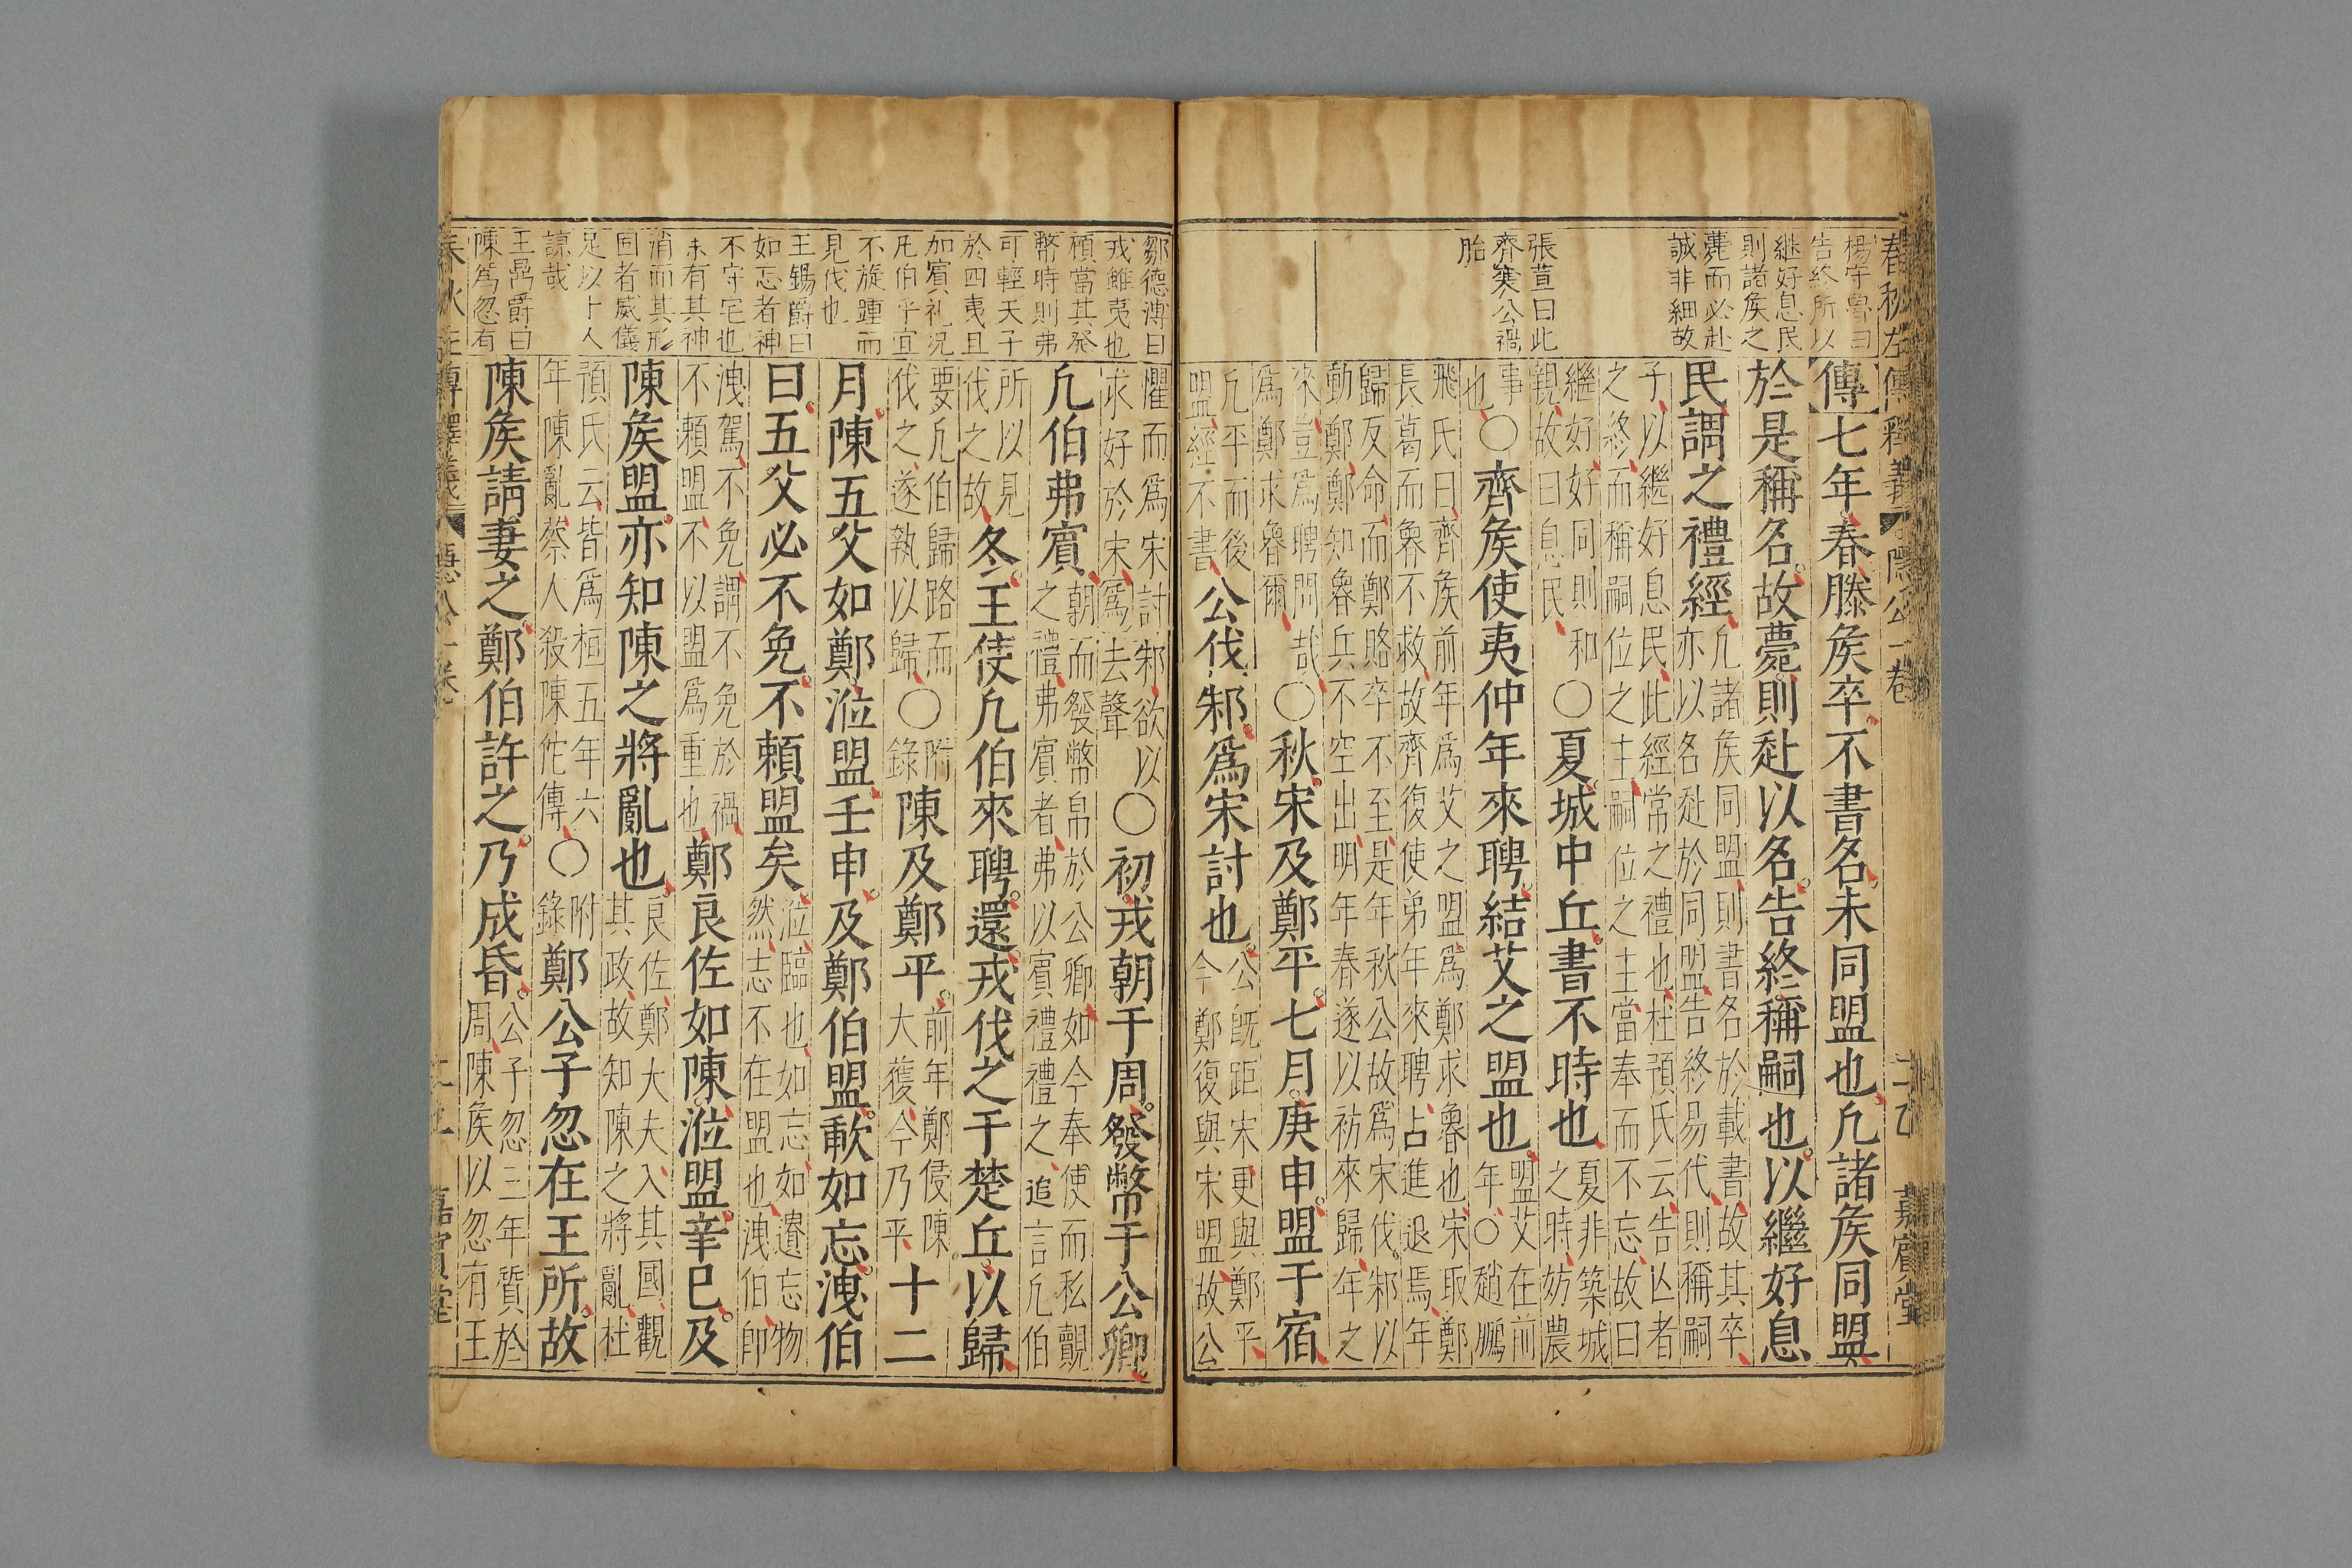 春秋左傳釋義 隱公一卷 嘉賓堂
楊守魯曰
告終所以
継好息民
則諸矦之
薨而必赴
誠非細故
張萱曰此
齊襄公禍
胎
傳七年春滕矦卒不書名未同盟也凢諸矦同盟
於是稱名故薨則赴以名告終稱嗣也以繼好息
民謂之禮經 凢諸矦同盟則書名於載書故其卒
亦以名赴於同盟告終易代則稱嗣
子以繼好息民此經常之禮也杜預氏云告亾者
之終而稱嗣位之主嗣位之主當奉而不忘故曰
繼好好同則和
親故曰息民
〇夏城中丘書不時也 夏非築城
之時妨農
事
也
〇齊矦使夷仲年來聘結艾之盟也 盟艾在前
年〇趙鵬
飛氏曰齊矦前年爲艾之盟爲鄭求魯也宋取鄭
長葛而魯不救故齊復使弟年來聘占進退焉年
歸反命而鄭賂卒不至是年秋公故爲宋伐邾以
動鄭鄭知魯兵不空出明年春遂以祊來歸年之
來豈爲聘問哉
爲鄭求魯爾
〇秋宋及鄭平七月庚申盟于宿
凢平而後
盟經不書
公伐邾爲宋討也 公旣距宋更與鄭平
今鄭復與宋盟故公
鄒德溥曰
戎雖夷也
頎當其發
幣時則弗
可輕天子
於四夷且
加賓礼况
凢伯乎宜
不旋踵而
見伐也
王錫爵曰
如忘者神
不守宅也
未有其神
消而其形
固者威儀
足以卜人
諒哉
王錫爵曰
陳爲忽有
懼而爲宋討邾欲以
求好於宋爲去聲
〇初戎朝于周發幣于公卿
凢伯弗賓 朝而發幣帛於公卿如今奉使而私覿
之禮弗賓者弗以賓禮禮之追言凢伯
所以見
伐之故
冬王使凢伯來聘還戎伐之于楚丘以歸
要凢伯歸路而
伐之遂執以歸
〇附
錄
陳及鄭平 前年鄭侵陳
大獲今乃平
十二
月陳五父如鄭涖盟壬申及鄭伯盟歃如忘洩伯
曰五父必不免不賴盟矣 涖臨也如忘如遺忘物
然志不在盟也洩伯即
洩駕不免謂不免於禍
不賴盟不以盟爲重也
鄭良佐如陳涖盟辛巳及
陳矦盟亦知陳之將亂也 良佐鄭大夫入其國觀
其政故知陳之將亂杜
預氏云皆爲桓五年六
年陳亂蔡人殺陳佗傳
〇附
錄
鄭公子忽在王所故
陳矦請妻之鄭伯許之乃成昏 公子忽三年質於
周陳矦以忽有王